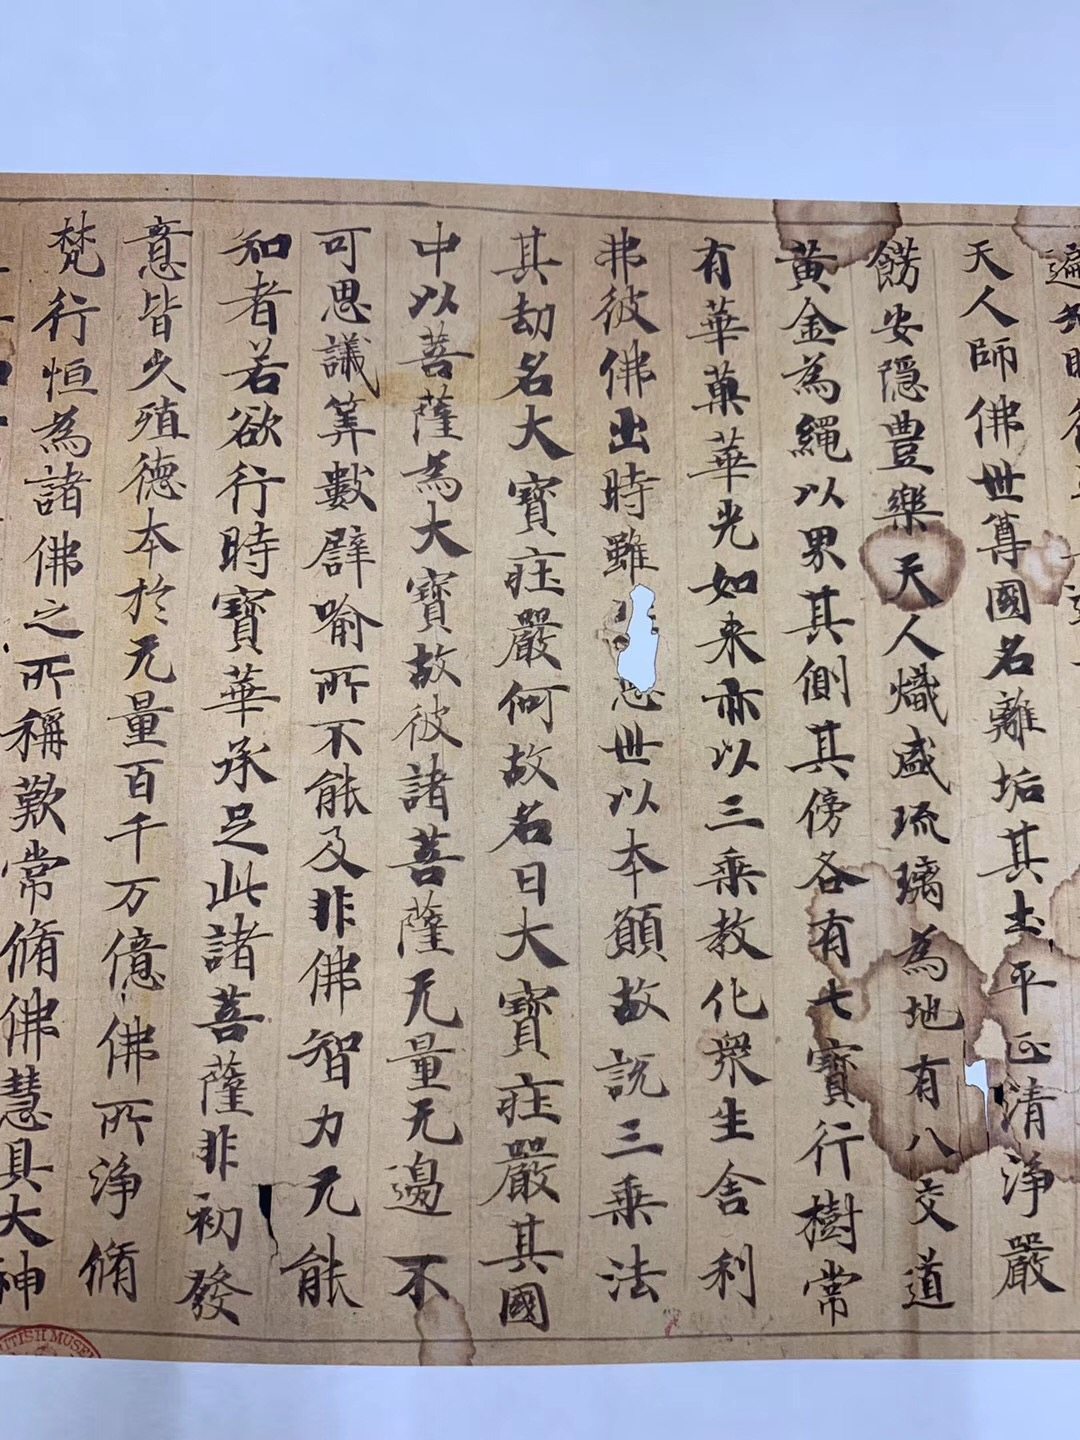 遍知明
天人師佛世尊國名離垢其土平正清淨嚴
餝安隱豊樂天人熾盛琉璃為地有八交道
黃金為繩以界其側其傍各有七寶行樹常
有華菓華光如来亦以三乘教化衆生舍利
弗彼佛出時雖惡世以本願故說三乘法
其劫名大寶莊嚴何故名曰大寶莊嚴其國
中以菩薩為大寶故彼諸菩薩无量无邊不
可思議筭數譬喻所不能及非佛智力无能
知者若欲行時寶華承足此諸菩薩非初發
意皆久殖德本於无量百千万億佛所淨脩
梵行恒為諸佛之所稱歎常脩佛慧具大神
BRITISH MUSE